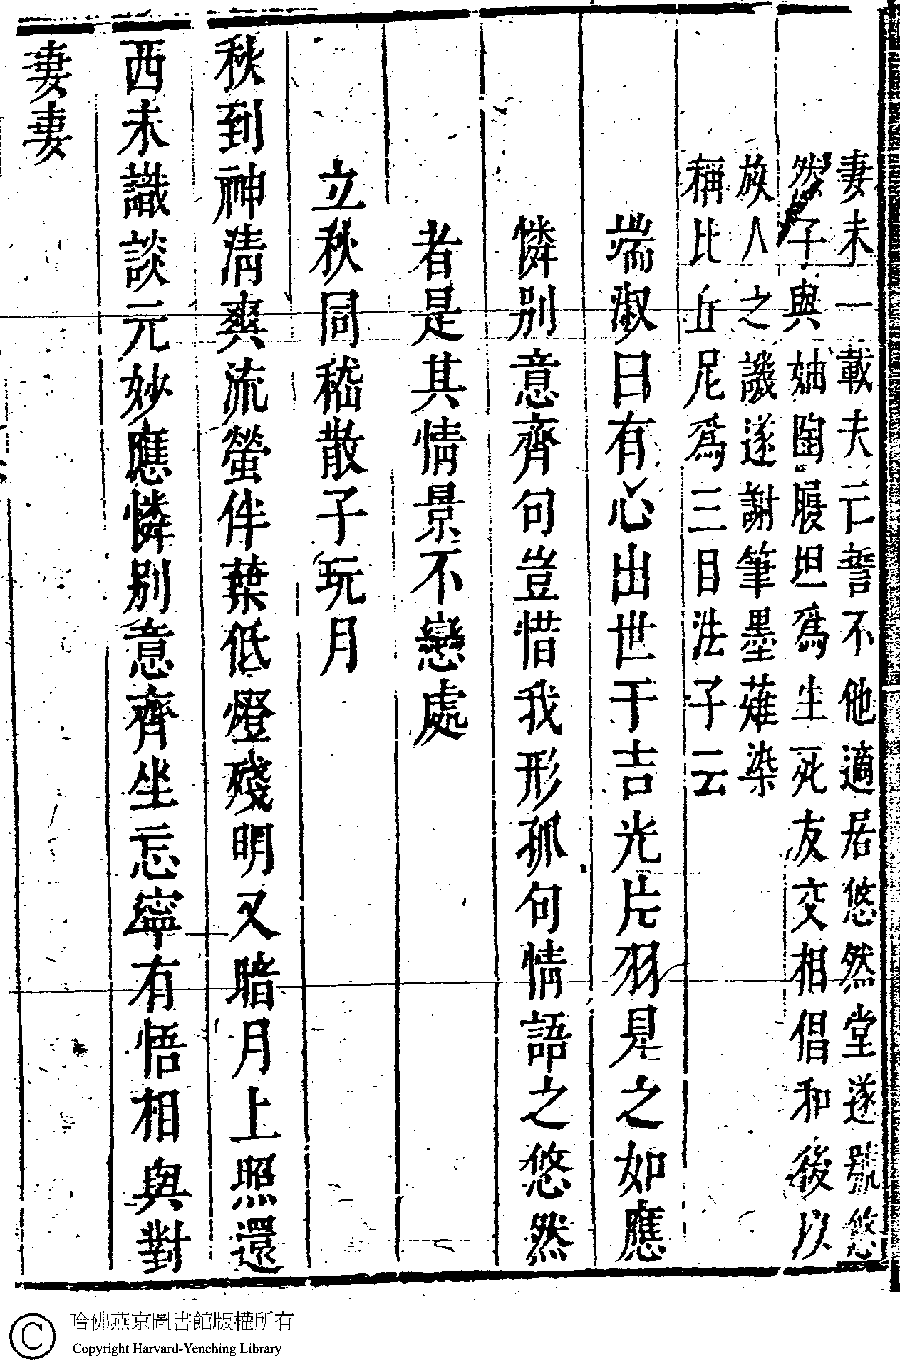 妻未一載夫亡誓不他適居悠然堂遂號悠
然子與妯陶履坦爲生死友交相倡和後以
族人之譏遂謝筆墨薙染
稱比丘尼爲三目法子云
端淑曰有心出世于吉光片羽見之如應
憐別意齊句豈惜我形孤句情語之悠然
者是其情景不戀處
立秋同嵇散子玩月
秋到神清爽流螢伴葉低燈殘明又暗月上照還
西未識談元妙應憐別意齊坐忘寧有悟相與對
妻妻
哈佛燕京圖書館版權所有
Copyright Harvard-Yenching Library